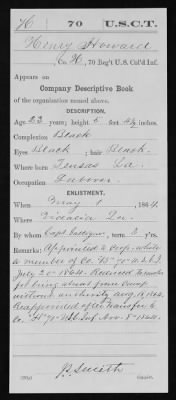 H | 70 | U.S.C.T.
Henry Howard
Co. H, 70 Reg't U.S. Col'd Inf.
Appears on
Company Descriptive Book
of the organization named above.
DESCRIPTION.
Age 23 years; height 5 feet inches.
Complexion Black
Eyes Black ; hair Black.
Where born Tensas La.
Occupation Laborer
ENLISTMENT.
When May 1 , 1864.
Where Vidalia La.
By whom Capt ; term 3 y'rs.
Remarks: Appointed to Corp. while
a member of Co. 
July 20 1864. Reduced to ranks
for being absent from Camp
without authority Aug 1864.
Reappointed after transfer to
Co "H" 70 U.S.C. Inf Nov. 5" 1864.
J. Smith